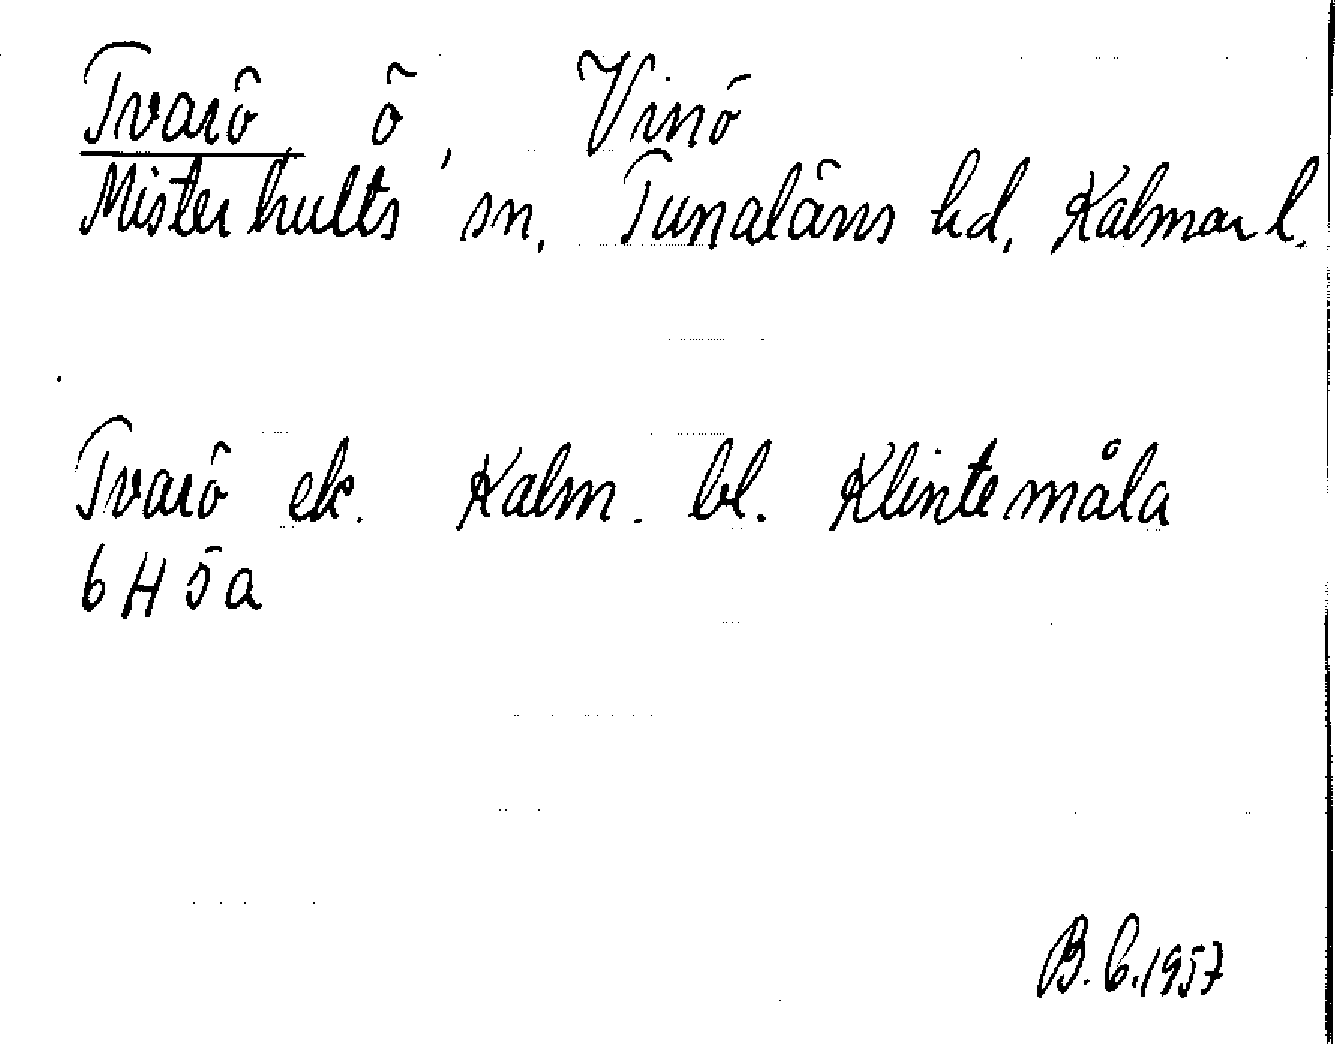 Tvarö ö, Vinö
Misterhults sn. Tunaläns hd. Kalmar l.
Tvarö ek. Kalm. bl. Klintemåla
6H5a
B.C.1957